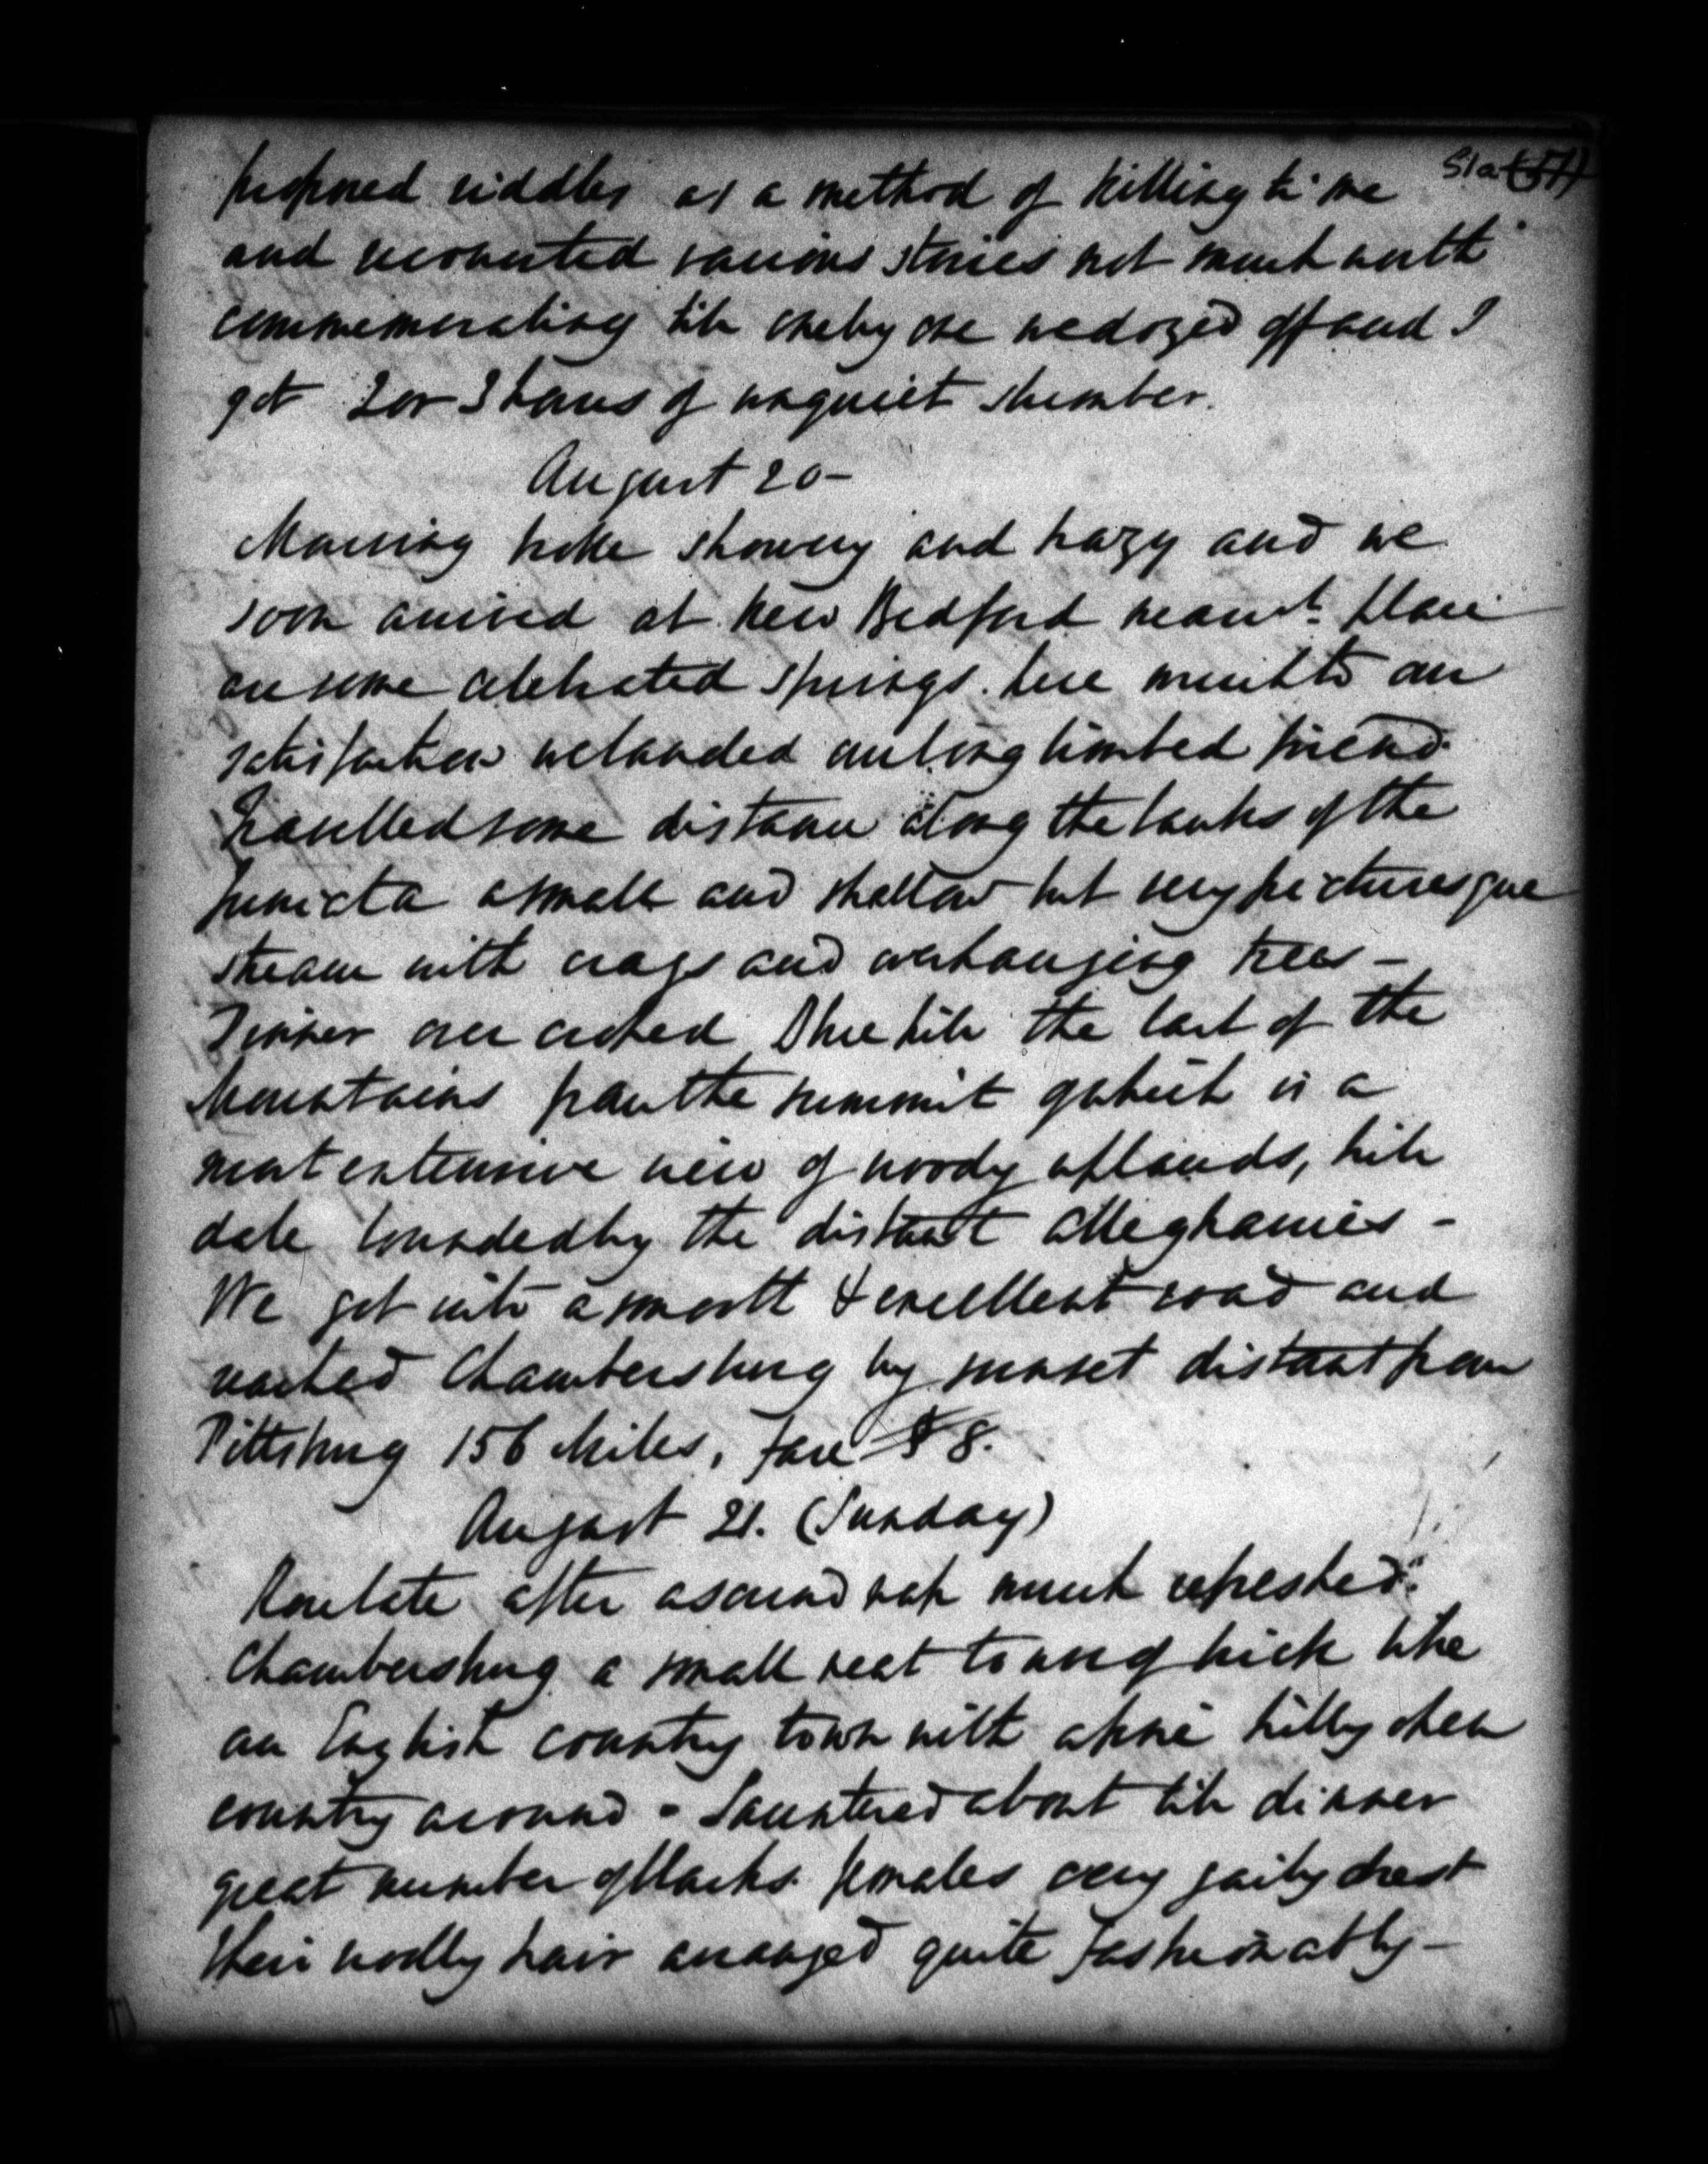 51a (57)
proposed riddles as a method of killing time
and recounted various stories not much worth
commemorating till one by one we dozed off and I
got 2 or 3 hours of unquiet slumber.
August 20 -
Morning broke showery and hazy and we
soon arrived at New Bedford near wh. place
are some celebrated springs. here much to our
satisfaction we landed our long limbed friend.
Travelled some distance along the banks of the
Juniata a small and shallow but very picturesque
stream with crags and overhanging trees -
Dinner over crossed Blue hill the last of the
Mountains from the summit of which is a
most extensive view of woody uplands, hill
dale bounded by the distant Alleghanies -
We got into a smooth & excellent road and
reached Chambersburg by sunset distant from
Pittsburg 156 Miles, fare $8.
August 21. (Sunday)
Rose late after a sound nap much refreshed.
Chambersburg a small neat town of brick like
an English country town with a fine hilly open
country around - Sauntered about till dinner
great number of blacks. females very gaily drest
their woolly hair arranged quite fashionably -